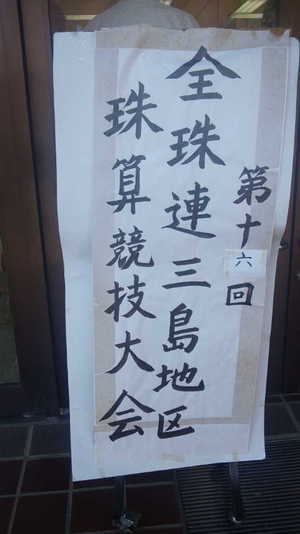 第十六回
全珠連三島地区
珠算競技大会